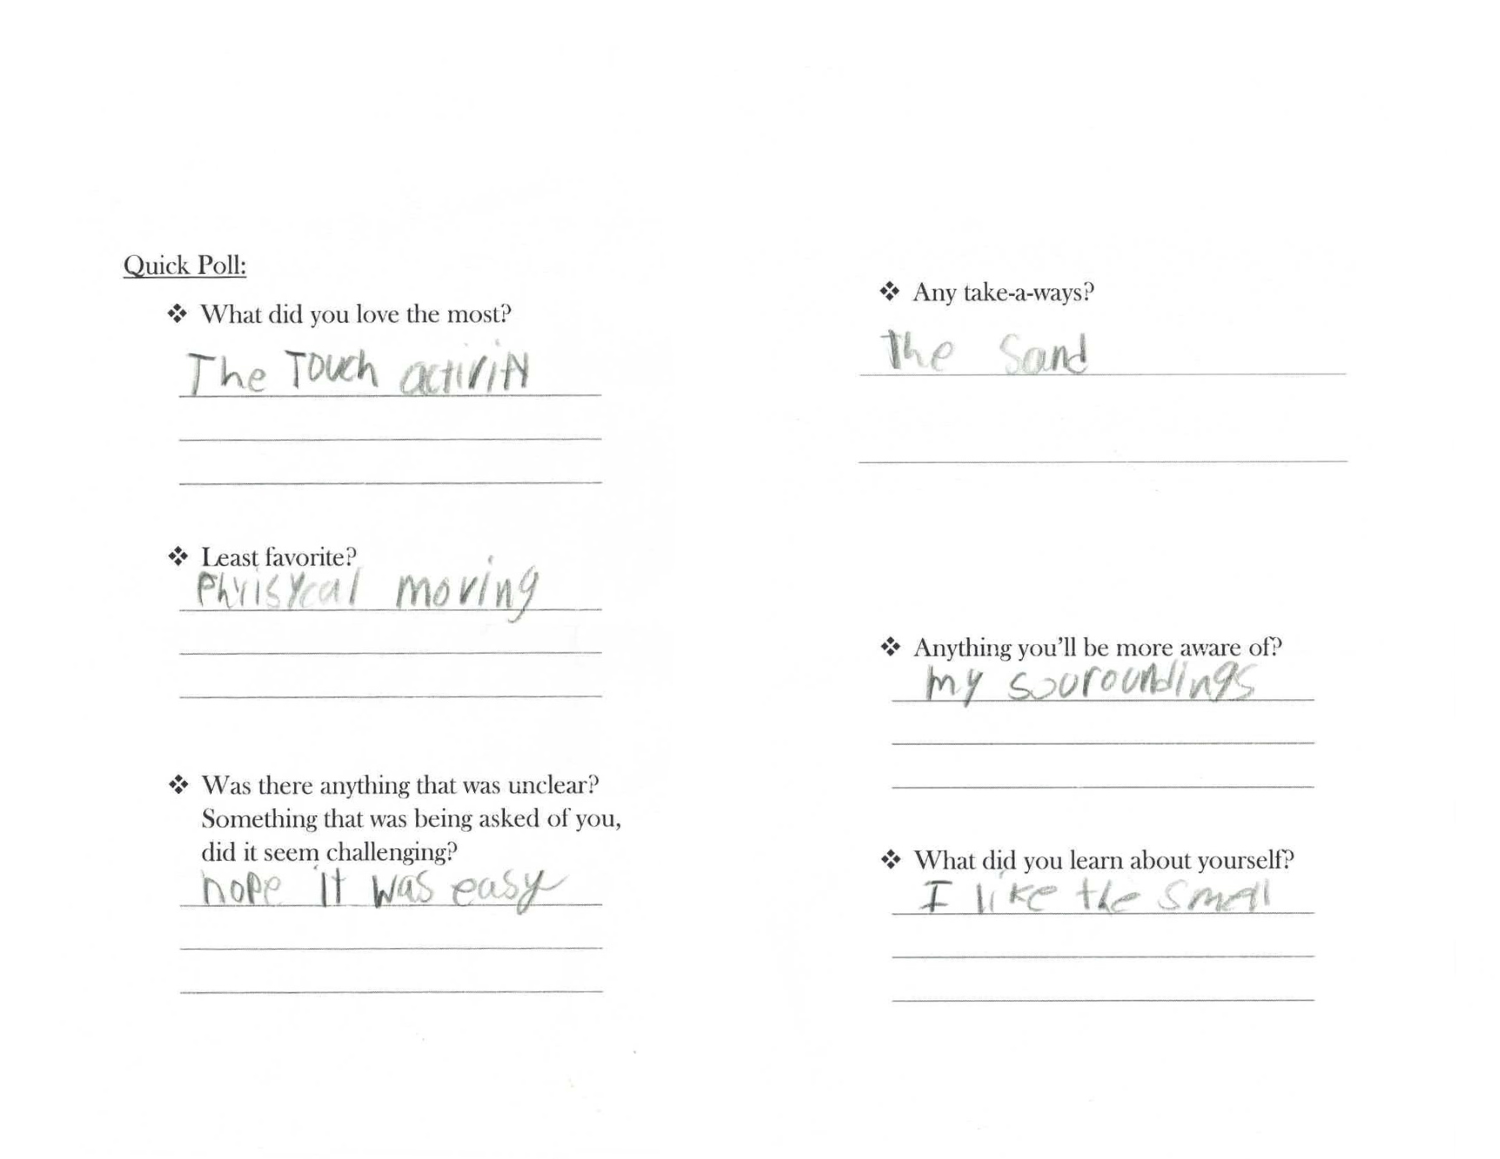 Quick Poll:
❖ What did you love the most?
The Touch activity
❖ Least favorite?
Phyisycal moving
❖ Was there anything that was unclear?
Something that was being asked of you,
did it seem challenging?
nope it was easy
❖ Any take-a-ways?
the Sand
❖ Anything you'll be more aware of?
my souroundings
❖ What did you learn about yourself?
I like the smell